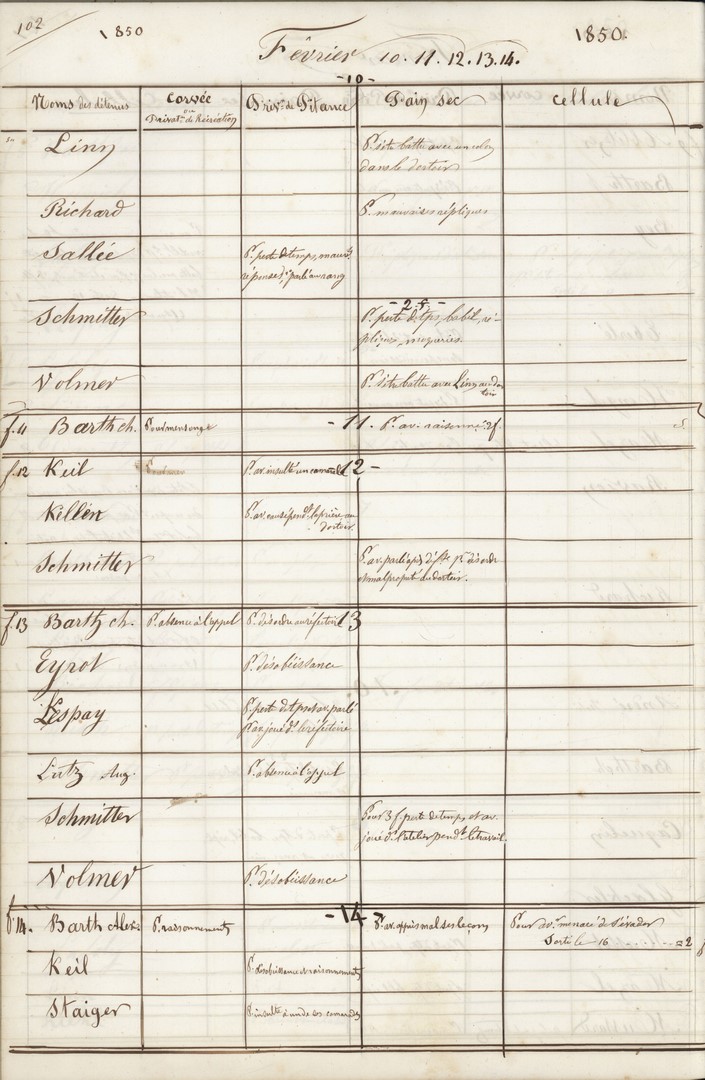 102
1850
1850.
Février 10. 11. 12. 13. 14.
- 10 -
Noms des détenus
Corvée
ou
Privat. de Récréation
Priv. de Pitance
Pain sec
Cellule
Linn
P. s'être battu avec un
dans le dortoir
Richard
P. mauvaises répliques
Sallée
P. perte de temps, mauv.
réponse, parlé au rang
Schmitter
- 2 f. -
P. perte de tps, babil, ré-
pliques,
Volmer
P. s'être battu avec Linn au dor
toir
f. 11
Barth ch.
Pour mensonge
- 11.
P. av. raisonné. 2 f.
f. 12
Keil
P. av. insulté un camarade
12 -
Killen
P. av. causé pendt. la prière au
dortoir.
Schmitter
P. av. parlé désordre
et malpropt. du dortoir.
f. 13
Barth ch.
P. absence à l'appel
P. désordre au réfectoire
13
Eyrot
P. désobéissance
Lespay
P. perte de tps et av. parlé
P. av. joué dt. le réfectoire
Lutz Aug.
P. absence à l'appel
Schmitter
Pour 3 f. perte de temps, et av.
joué ds. l'atelier pendt. le travail.
Volmer
P. désobéissance
- 14 -
f. 14.
Barth Alex.
P. raisonnements
P. av. appris mal ses leçons
Pour av. menacé de s'évader
Sorti le 16 = 2
Keil
P. désobéissance et raisonnements
Staiger
P. insulte à un de ses camarades